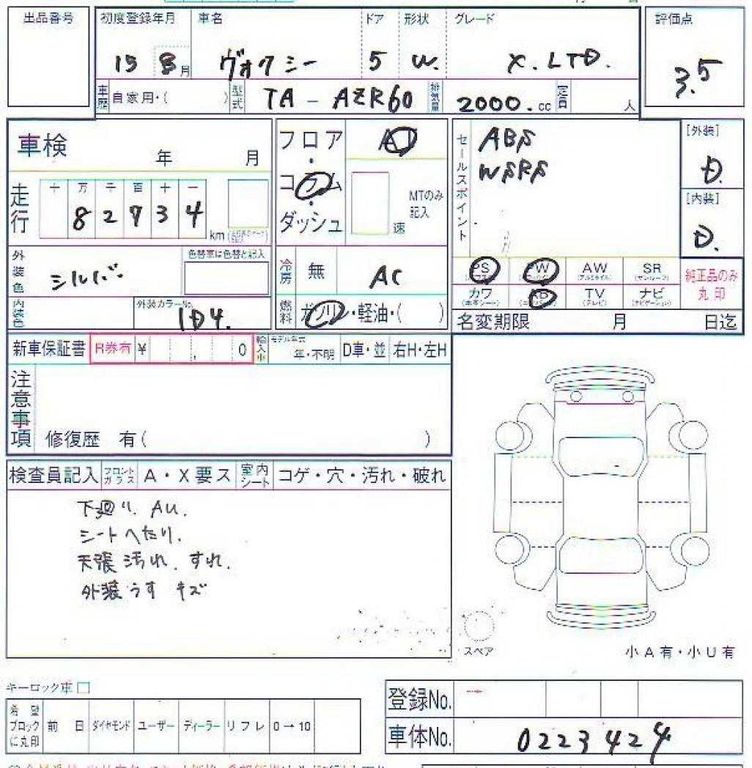 出品番号
初度登録年月 車名 ドア 形状 グレード 評価点
15 8月 ヴォクシー 5 W. X. LTD. 3.5
車歴 自家用・( ) 型式 TA - AZR60 排気量 2000.cc 定員 人
車検 年 月
フロア・コラム・ダッシュ AT
MTのみ記入
速
セールスポイント ABS
WSRS
[外装]
D.
[内装]
D.
走行 十 万 千 百 十 一
8 2 7 3 4 km
外装色 シルバー
色替車は色替と記入
冷房 無 AC
PS PW AW SR
カワ AB TV ナビ
純正品のみ丸印
内装色 外装カラーNo. 1D4.
燃料 ガソリン・軽油・( )
名変期限 月 日迄
新車保証書 R券有 ¥ , 0 輸入車 モデル年式 年・不明 D車・並 右H・左H
注意事項
修復歴 有( )
検査員記入 フロントガラス A・X要ス 室内シート コゲ・穴・汚れ・破れ
下廻り. AU.
シートへたり.
天張汚れ. すれ.
外装うすキズ
スペア
小A有・小U有
キーロック車 □
希望ブロックに丸印 前 日 ダイヤモンド ユーザー ディーラー リフレ 0→10
登録No.
車体No. 0223424